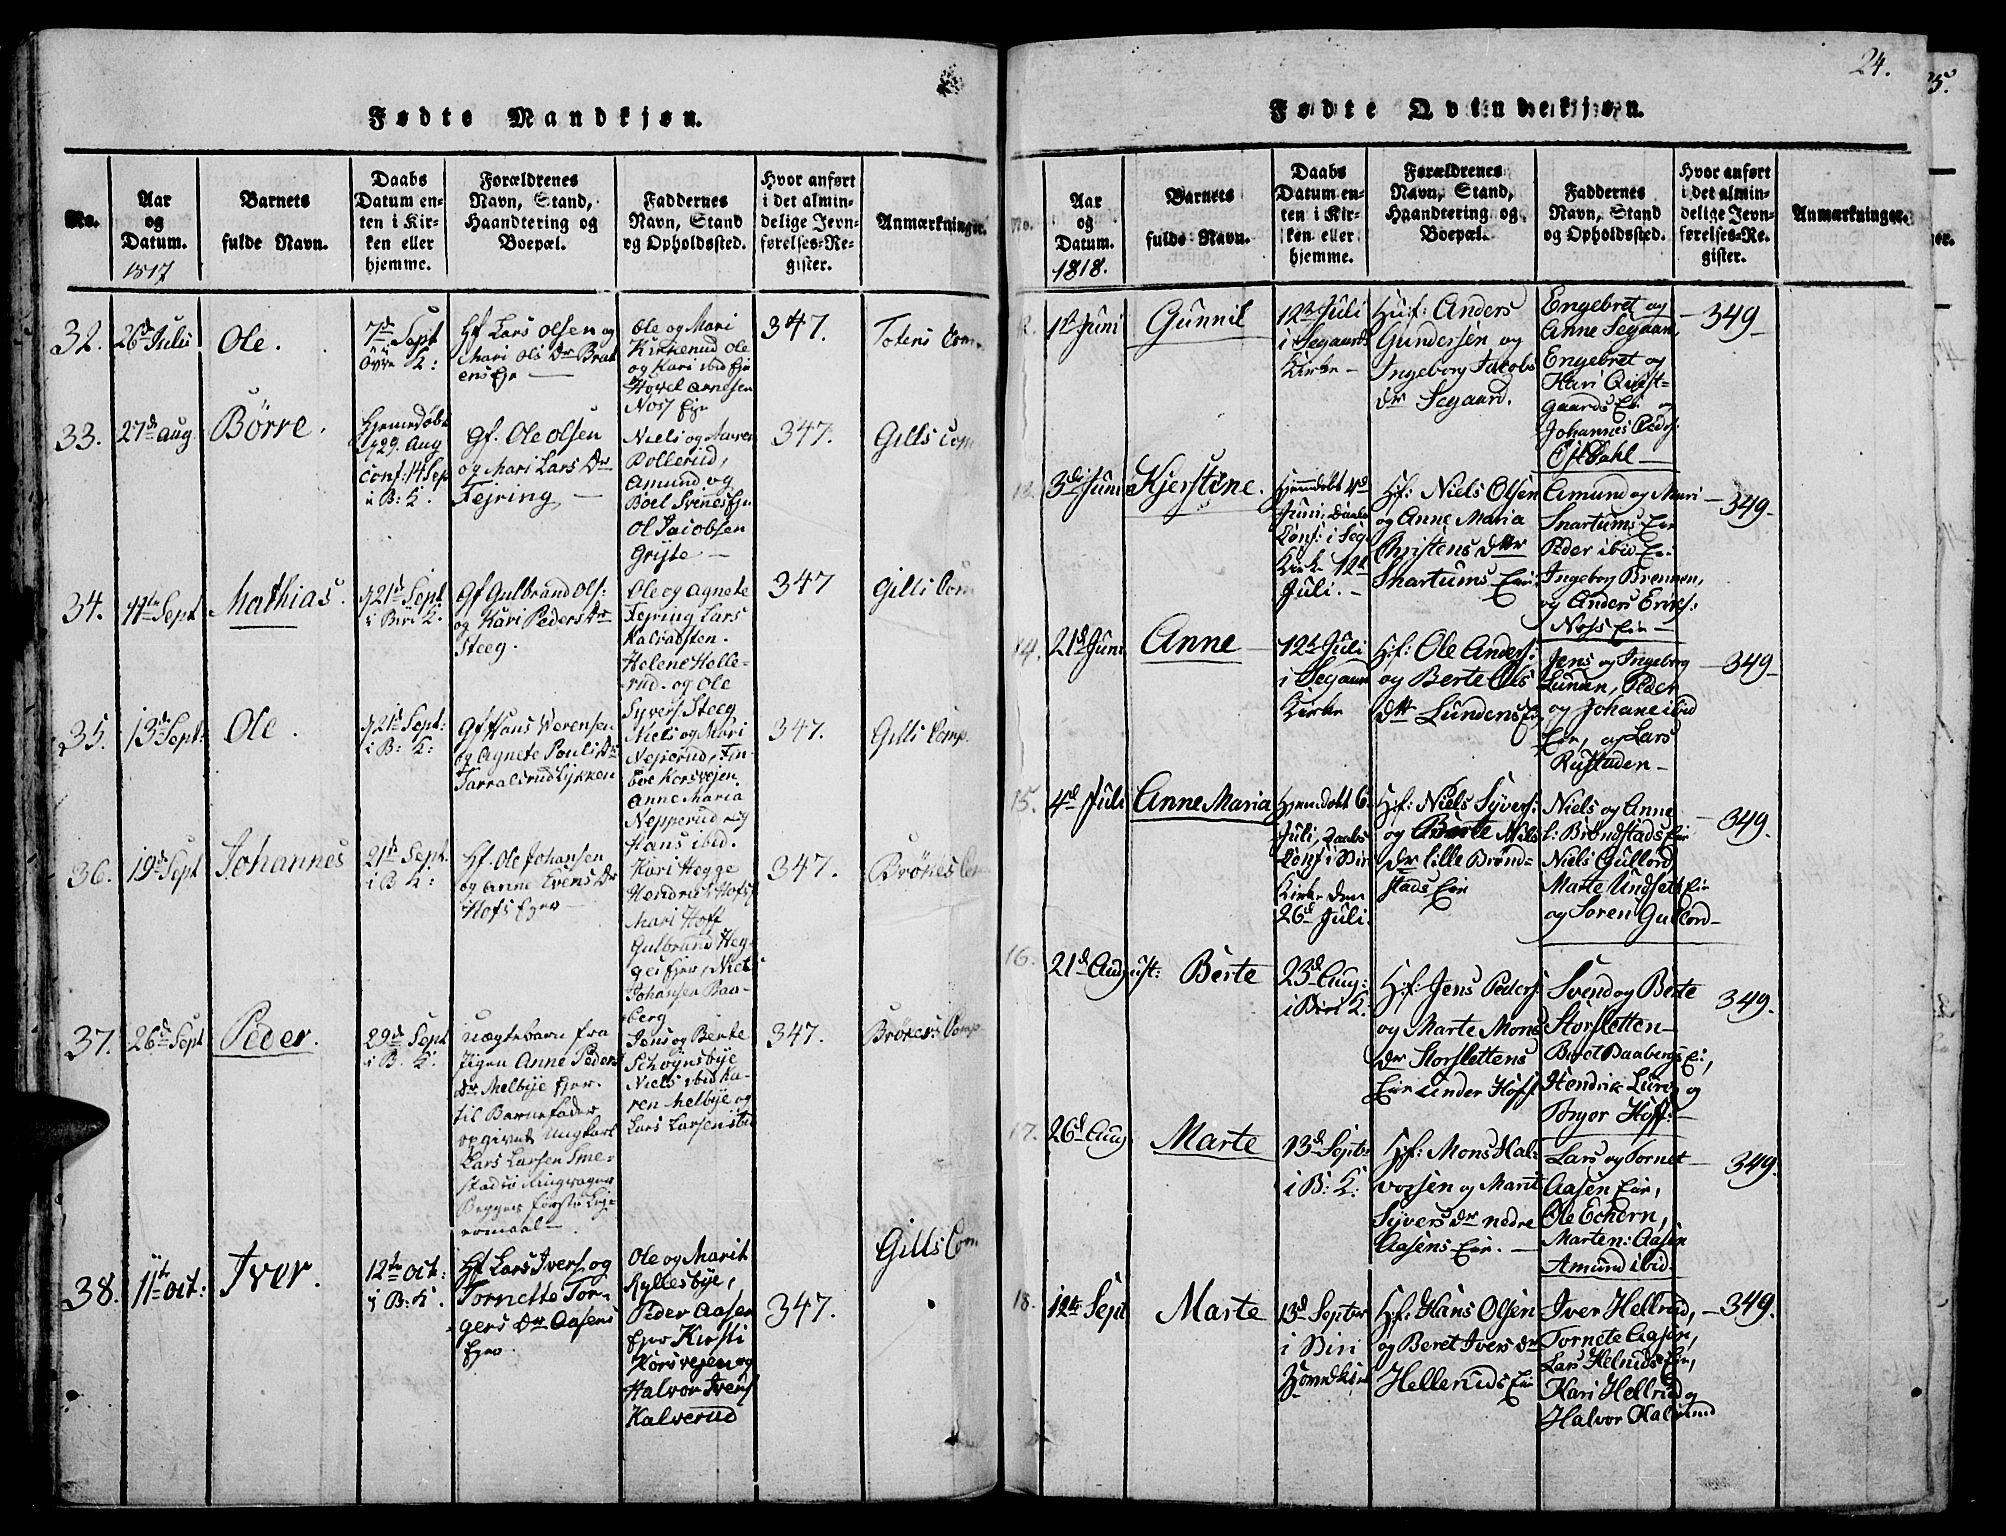 24.
25.
Fødte Mandkjøn.
No.
Aar
og
Datum.
1817
Barnets
fulde Navn.
Daabs
Datum en-
ten i Kir-
ken eller
hjemme.
Forældrenes
Navn, Stand,
Haandtering og
Boepæl.
Faddernes
Navn, Stand
og Opholdssted.
Hvor anført
i det almin-
delige Jevn-
førelses-Re-
gister.
Anmærkninger.
32.
26de Juli
Ole.
7de Sept
Øvre K:
Hf Lars Olsen og
Mari Ols Dr Brat
ens Eje
Ole og Mari
Kirkerud Ole
og Kari ibid Eje
Hovel Arnesen
Noss Eje
347.
Totens Com
33.
27de Aug
Børre.
Hjemedøbt
29. Aug
Conf: 14 Sep
i B: K.
Gf. Ole Olsen
og Mari Lars Dr
Fejring
Niels og Maren
Bollerud,
Amund og
Boel Svines Eje
Ol Jacobsen
Grijte
347.
Gills Com
34.
11te Sept
Mathias.
21de Sept
i Biri K.
Gf Gulbrand Ols:
og Kari Peders Dr
Steeg.
Ole og Agnete
Fejring Lars
Kalradsten.
Helene Helle-
rud og Ole
Syvers Steeg
347
Gills Com
35.
13de Sept:
Ole.
21de Sept:
i B: K:
Gf Hans Sørensen
og Agnete Pouls Dr
Tarralsrud Lykken
Niels og Mari
Neperud, Em-
bre Korsvejen
Anne Maria
Nepperud og
Hans ibid.
347.
Gills Comp.
36.
19de Sept
Johannes
21de Sept.
i B K:
Hf. Ole Johansen
og Anne Evens Dr
Hofs Ejer
Kari Hegge
Hendrich Hofs
Mari Hoff
Gulbrand Heg-
ges Ejer, Niels
Johansen Baa-
berg
347.
Brøkes Com
37.
26de Sept
Peder.
29de Sept
i B. K:
uægtebarn fra
Pigen Anne Peders
Dr Melbye Ejer.
til Barnefader
opgivet Ungkarl
Lars Larsen Sme-
stad i Ringsager
Begges første Leje-
ermaal
Jens og Berte
Schøynsbye
Niels ibid Ka-
ren Melbye og
Lars Larsen ibid
347.
Brøkes: Comp
38.
11te Oct:
Iver.
12te Oct:
i B: K.
Hf Lars Ivers. og
Tornette Tor-
gers Dr Aasens
Ejer.
Ole og Marit
Kyllesbye,
Peder Aasen
Ejer Kirsti
Korsvejen og
Halvor Ivers
Kalverud
347.
Gills Com
Fødte Qvindekjøn.
No.
Aar
og
Datum.
1818.
Barnets
fulde Navn.
Daabs
Datum en-
ten i Kir-
ken eller
hjemme.
Forældrenes
Navn, Stand,
Haandtering og
Boepæl.
Faddernes
Navn, Stand
og Opholdssted.
Hvor anført
i det almin-
delige Jevn-
førelses-Re-
gister.
Anmærkninger.
12.
1st Juni
Gunnil
12te Juli
i Segaard
Kirke
Huf: Anders
Gundersen og
Ingeborg Jacobs
dr Segaard.
Engebret og
Anne Segaard,
Engebret og
Kari Qvist-
gaards Eir og
Johannes Peders
Eftdahl
349
13.
3die Juni
Kjerstine.
Hjemdøbt 4de
Juni, Daabs
Conf: i Seg
Kirke 12te
Juli.
Hf: Niels Olsen
og Anne Maria
Christens dtr
Snartums Eier
Amund og Mari
Snartums Eir
Peder ibid Ei.
Ingeborg Brennen,
og Anders Erichs:
Noss Eir
349
14.
21de Juni
Anne
12te Juli
i Segaard
Kirke
Hf: Ole Anders:
og Berte Ols
dtr Lundens Eir
Jens og Ingeborg
Lunden, Peder
og Johane ibid
Eir, og Lars
Rustaden
349
15.
4de Juli
Anne Maria
Hjemdøbt 6.
Juli, Daabs
Conf i Biri
Kirke den
26de Juli.
Hf: Niels Syvers:
og Berte Niels
dr lille Brønd-
stads Eir
Niels og Anne
l: Brøndstads Eir
Niels Gullord
Marte Undsets Eir
og Soren Gullord
349.
16.
21de August:
Berte
23de Aug:
i Biri K.
Hf: Jens Peders:
og Marte Mons
dr Storslettens
Eir under Hoff.
Svend og Berte
Storsletten
Beret Baabergs Ei,
Hendrik Lure og
Torger Hoff:
349.
17.
26de Aug
Marte
13de Septbr
i B: K:
Hf: Mons Hal-
vorsen og Marit
Syvers dr nedre
Aasens Eir.
Lars og Tornet
Aasen Eir,
Ole Echern,
Marten: Aasen
Amund ibid
349.
18.
12te Sept
Marte
13de Septbr
i Biri
Hovedkirke
Hf: Hans Olsen
og Beret Ivers dr
Helleruds Eir
Iver Hellrud,
Tornete Aasen,
Lars Helruds Eir,
Kari Hellrud og
Halvor Kalverud
349.